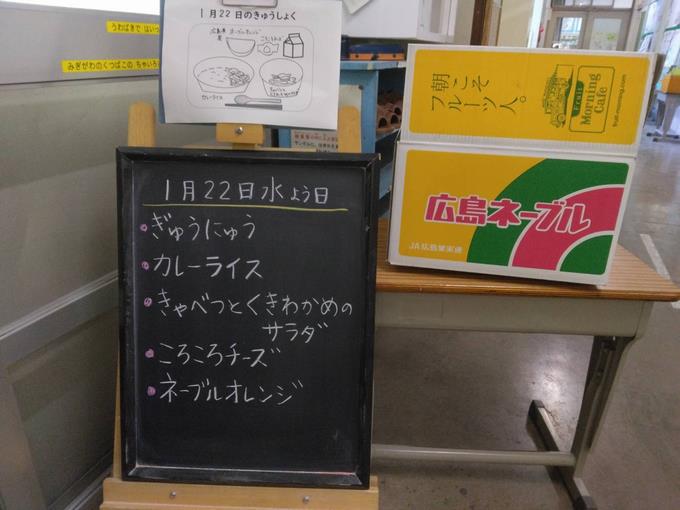 うわばきで はいっ
みぎがわのくつばこの ちゃいろ
1月22日のきゅうしょく
広島県産 ネーブルオレンジ
カレーライス
1月22日水よう日
ぎゅうにゅう
カレーライス
きゃべつとくきわかめの
サラダ
ころころチーズ
ネーブルオレンジ
朝こそ
フルーツ人。
Fruit
Morning
Cafe
広島ネーブル
JA広島果実連